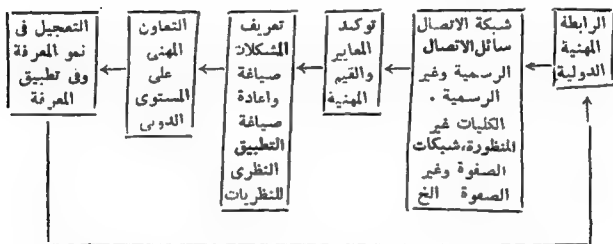 الرابطة
المهنية
الدولية
شبكة الاتصال
سائل الاتصال
الرسمية وغير
الرسمية .
الكليات غير
المنظورة، شبكات
الصفوة وغير
الصفوة الخ
توكيد
المعايير
والقيم
المهنية
تعريف
المشكلات
صياغة
واعادة
صياغة
التطبيق
النظرى
للنظريات
التعاون
المهنى
على
المستوى
الدولى
التعجيل فى
نمو المعرفة
وفى تطبيق
المعرفة